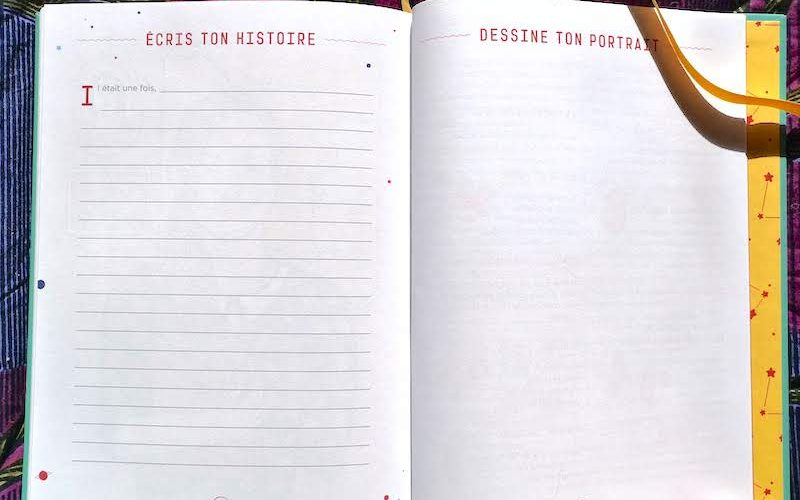 ÉCRIS TON HISTOIRE
I l était une fois,
DESSINE TON PORTRAIT